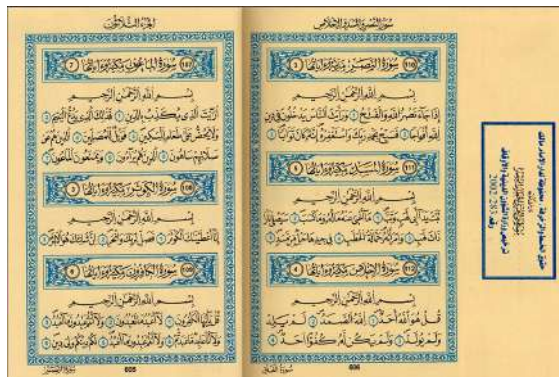 الجزء الثلاثون
107 سورة الماعون مكية وآياتها 7
بسم الله الرحمن الرحيم
أرأيت الذي يكذب بالدين فذلك الذي يدع اليتيم
ولا يحض على طعام المسكين فويل للمصلين الذين هم عن
صلاتهم ساهون الذين هم يراءون ويمنعون الماعون
108 سورة الكوثر مكية وآياتها 3
بسم الله الرحمن الرحيم
إنا أعطيناك الكوثر فصل لربك وانحر إن شانئك هو الأبتر
109 سورة الكافرون مكية وآياتها 6
بسم الله الرحمن الرحيم
قل يا أيها الكافرون لا أعبد ما تعبدون ولا أنتم عابدون ما أعبد
ولا أنا عابد ما عبدتم ولا أنتم عابدون ما أعبد لكم دينكم ولي دين
605
سورة النصر والمسد والإخلاص
110 سورة النصر مدنية وآياتها 3
بسم الله الرحمن الرحيم
إذا جاء نصر الله والفتح ورأيت الناس يدخلون في دين
الله أفواجا فسبح بحمد ربك واستغفره إنه كان توابا
111 سورة المسد مكية وآياتها
بسم الله الرحمن الرحيم
تبت يدا أبي لهب وتب ما أغنى عنه ماله وما كسب سيصلى نارا
ذات لهب وامرأته حمالة الحطب في جيدها حبل من مسد
112 سورة الإخلاص مكية وآياتها 4
بسم الله الرحمن الرحيم
قل هو الله أحد الله الصمد لم يلد
ولم يولد ولم يكن له كفؤا أحد
606
سورة الفلق